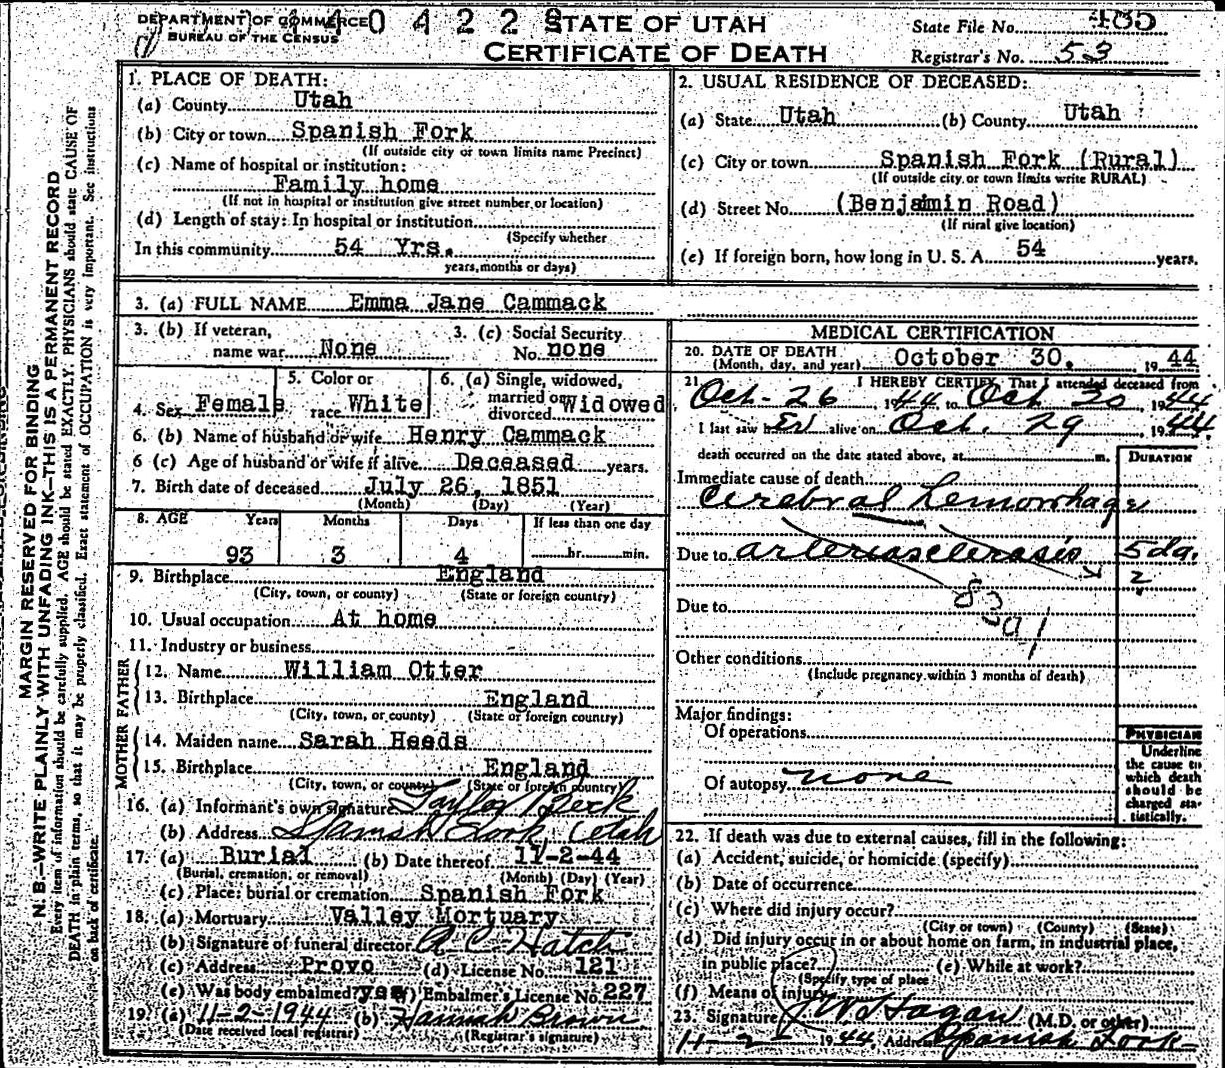 DEPARTMENT OF COMMERCE
BUREAU OF THE CENSUS
0 4 2 2
STATE OF UTAH
CERTIFICATE OF DEATH
State File No. 485
Registrar's No. 53
MARGIN RESERVED FOR BINDING
N. B.—WRITE PLAINLY WITH UNFADING INK—THIS IS A PERMANENT RECORD
Every item of information should be carefully supplied. AGE should be stated EXACTLY. PHYSICIANS should state CAUSE OF
DEATH in plain terms, so that it may be properly classified. Exact statement of OCCUPATION is very important. See instructions
on back of certificate.
1. PLACE OF DEATH:
(a) County Utah
(b) City or town Spanish Fork
(If outside city or town limits name Precinct)
(c) Name of hospital or institution:
Family home
(If not in hospital or institution give street number or location)
(d) Length of stay: In hospital or institution
(Specify whether
In this community 54 Yrs.
years, months or days)
2. USUAL RESIDENCE OF DECEASED:
(a) State Utah (b) County Utah
(c) City or town Spanish Fork (Rural)
(If outside city or town limits write RURAL)
(d) Street No. (Benjamin Road)
(If rural give location)
(e) If foreign born, how long in U. S. A. 54 years.
3. (a) FULL NAME Emma Jane Cammack
3. (b) If veteran, 3. (c) Social Security
name war None No. none
4. Sex Female 5. Color or race White 6. (a) Single, widowed, married or divorced Widowed
6. (b) Name of husband or wife Henry Cammack
6 (c) Age of husband or wife if alive Deceased years.
7. Birth date of deceased July 26, 1851
(Month) (Day) (Year)
8. AGE Years Months Days If less than one day
93 3 4 hr. min.
9. Birthplace England
(City, town, or county) (State or foreign country)
10. Usual occupation At home
11. Industry or business
FATHER
12. Name William Otter
13. Birthplace England
(City, town, or county) (State or foreign country)
MOTHER
14. Maiden name Sarah Heeds
15. Birthplace England
(City, town, or county) (State or foreign country)
16. (a) Informant's own signature Taylor Beck
(b) Address Spanish Fork Utah
17. (a) Burial (b) Date thereof 11-2-44
(Burial, cremation, or removal) (Month) (Day) (Year)
(c) Place: burial or cremation Spanish Fork
18. (a) Mortuary Valley Mortuary
(b) Signature of funeral director A C Hatch
(c) Address Provo (d) License No. 121
(e) Was body embalmed? yes (f) Embalmer's License No. 227
19. (a) 11-2-1944 (b) Hannah Brown
(Date received local registrar) (Registrar's signature)
MEDICAL CERTIFICATION
20. DATE OF DEATH October 30, 1944
(Month, day, and year)
21. I HEREBY CERTIFY, That I attended deceased from
Oct - 26, 1944 to Oct 30, 1944
I last saw h er alive on Oct. 29, 1944
death occurred on the date stated above, at m.
DURATION
Immediate cause of death
Cerebral hemorrhage
Due to arteriosclerosis 5 da.
Due to
83a1
Other conditions
(Include pregnancy within 3 months of death)
Major findings:
Of operations
Of autopsy none
PHYSICIAN
Underline
the cause to
which death
should be
charged sta-
tistically.
22. If death was due to external causes, fill in the following:
(a) Accident, suicide, or homicide (specify)
(b) Date of occurrence
(c) Where did injury occur?
(City or town) (County) (State)
(d) Did injury occur in or about home on farm, in industrial place,
in public place? (e) While at work?
(Specify type of place
(f) Means of injury
23. Signature J W Hagan (M.D. or other)
11-2 1944, Address Spanish Fork